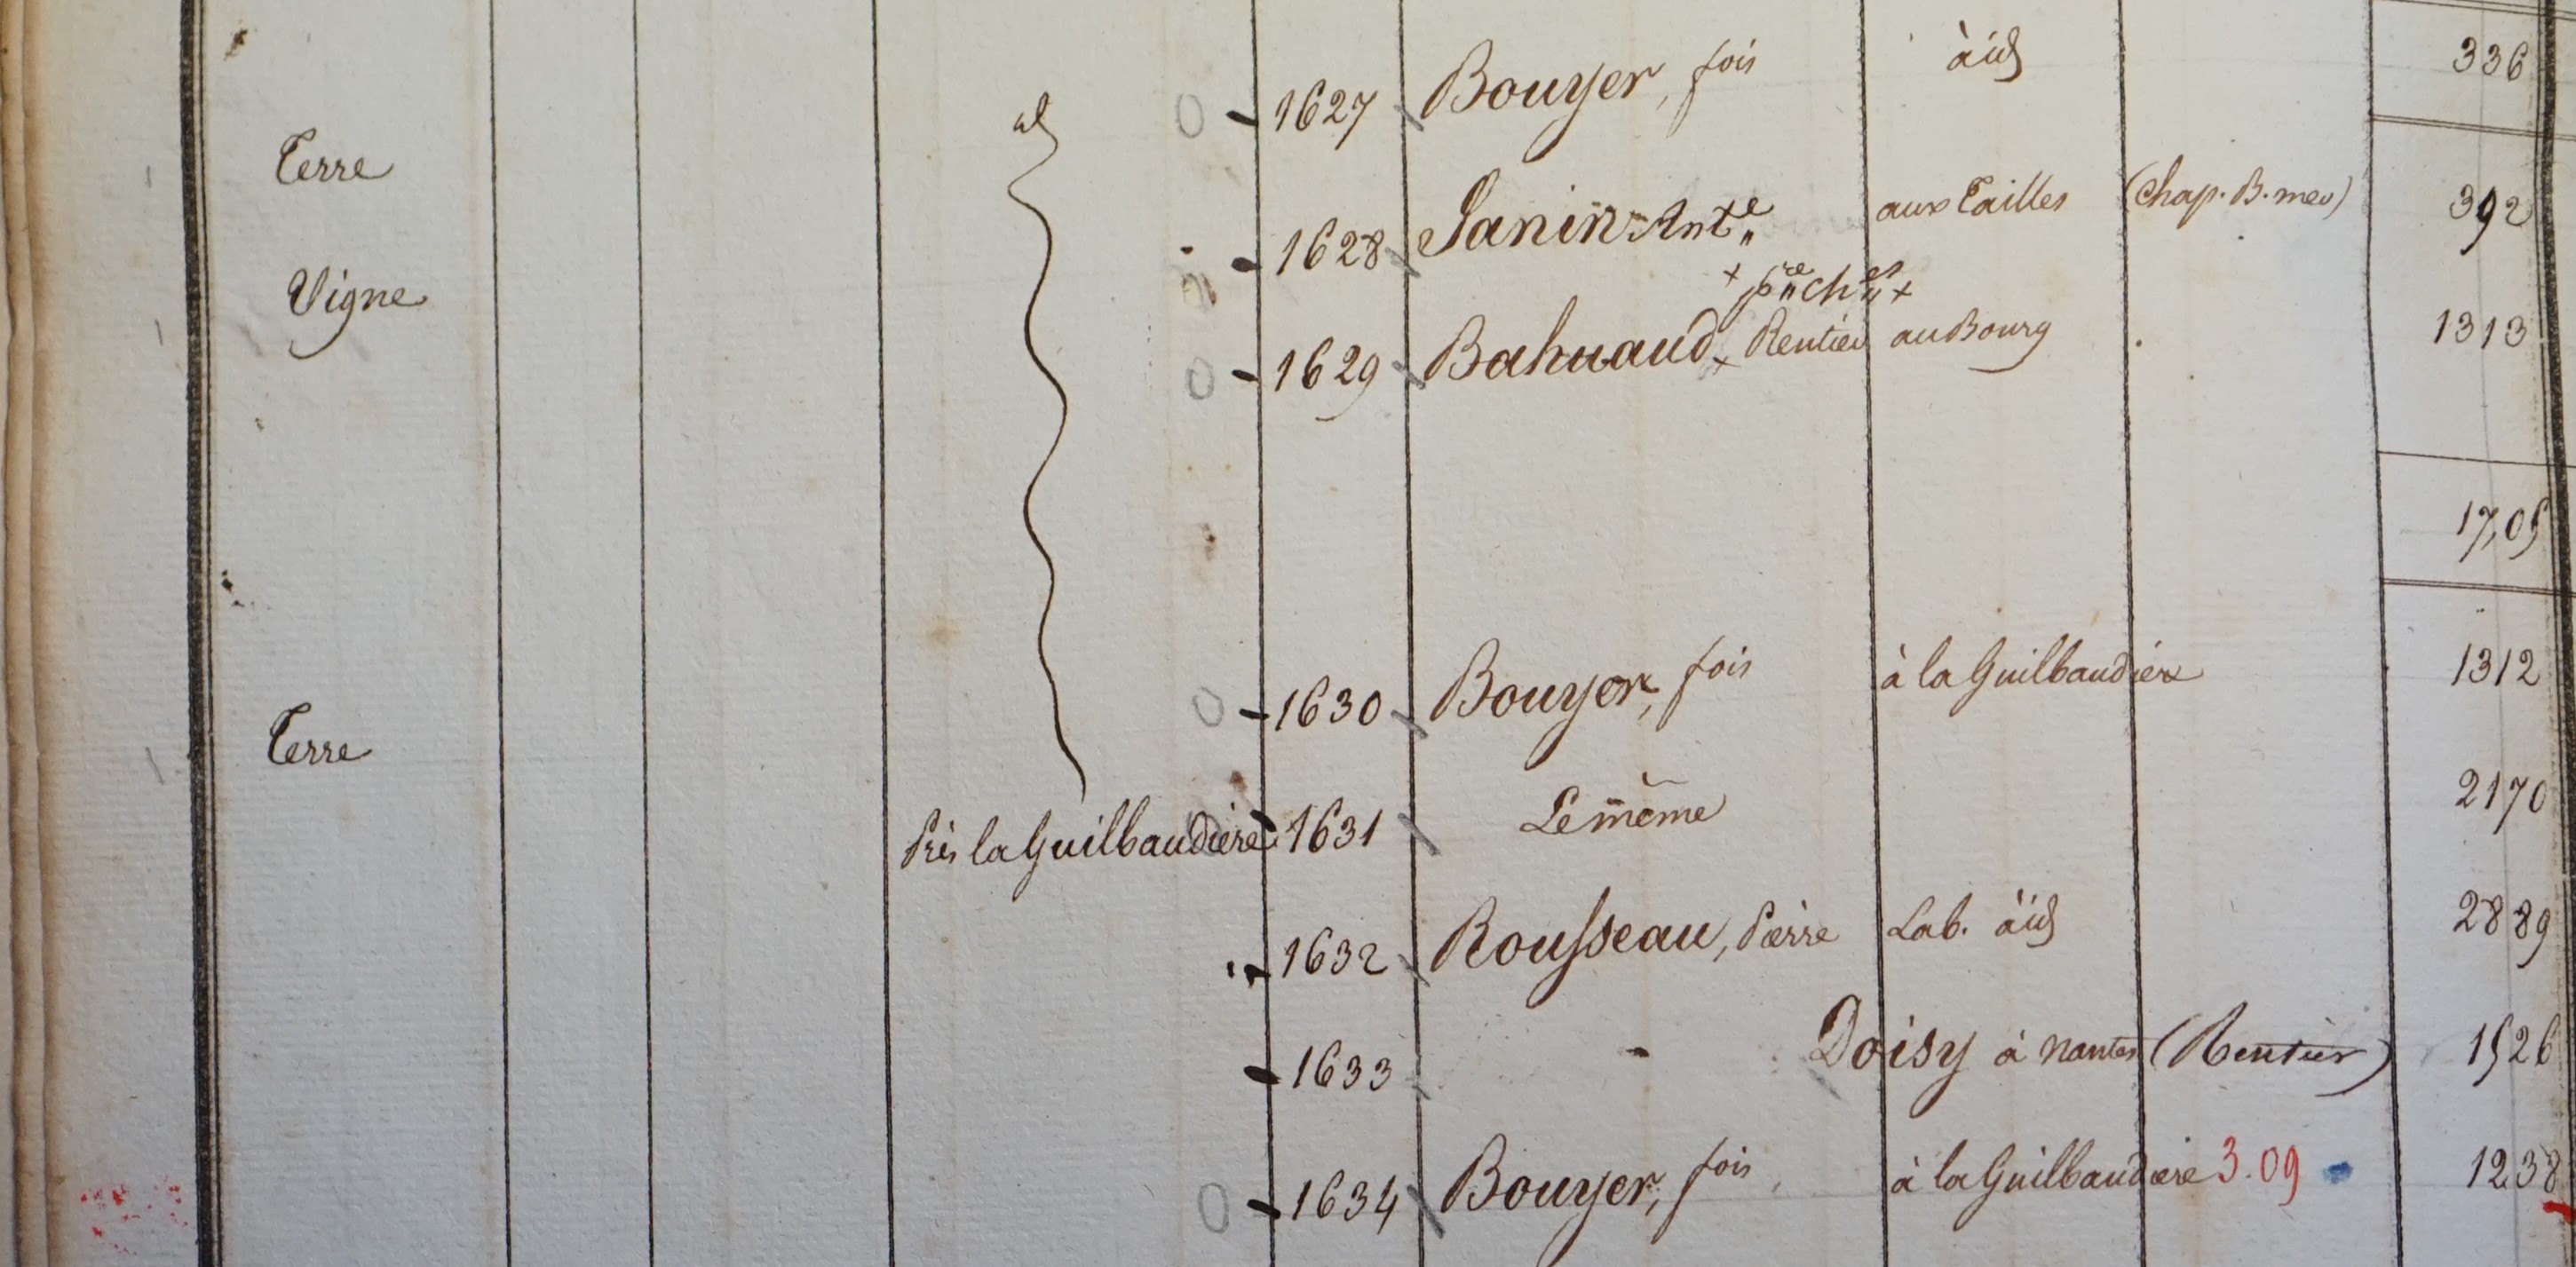 id 1627 Bouyer, fois à id 336
Terre 1628 Janin Ant.e aux Tailles (Chap. B. mer) 392
+ p.re ch.es +
Vigne 1629 Bahuaud + Rentier au Bourg 1313
17,05
1630 Bouyer, fois à la Guilbaudière 1312
Terre
Près la Guilbaudière 1631 Le même 2170
1632 Rousseau, Pierre Lab. à id 2889
1633 Doisy à nantes (Rentier) 1526
1634 Bouyer, fois à la Guilbaudière 3.09 1238